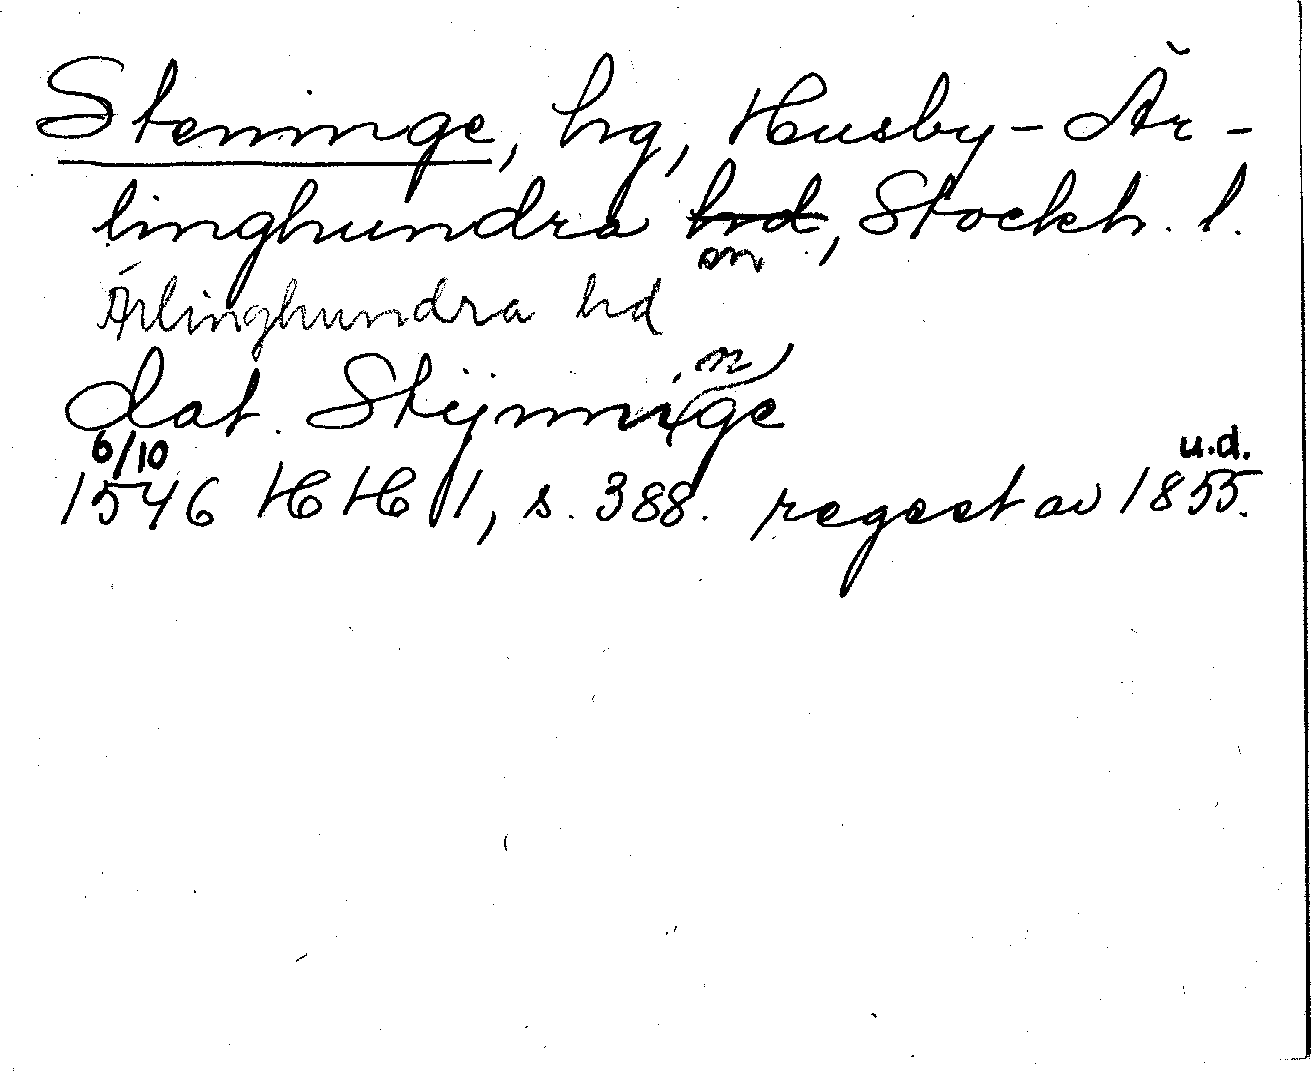 Steninge, hg, Husby-Är-
linghundra hrd, Stockh. l.
sn
Ärlinghundra hd
dat. Steijnninge
6/10
1546 HH 11, s. 388. regest av 1855.
u.d.